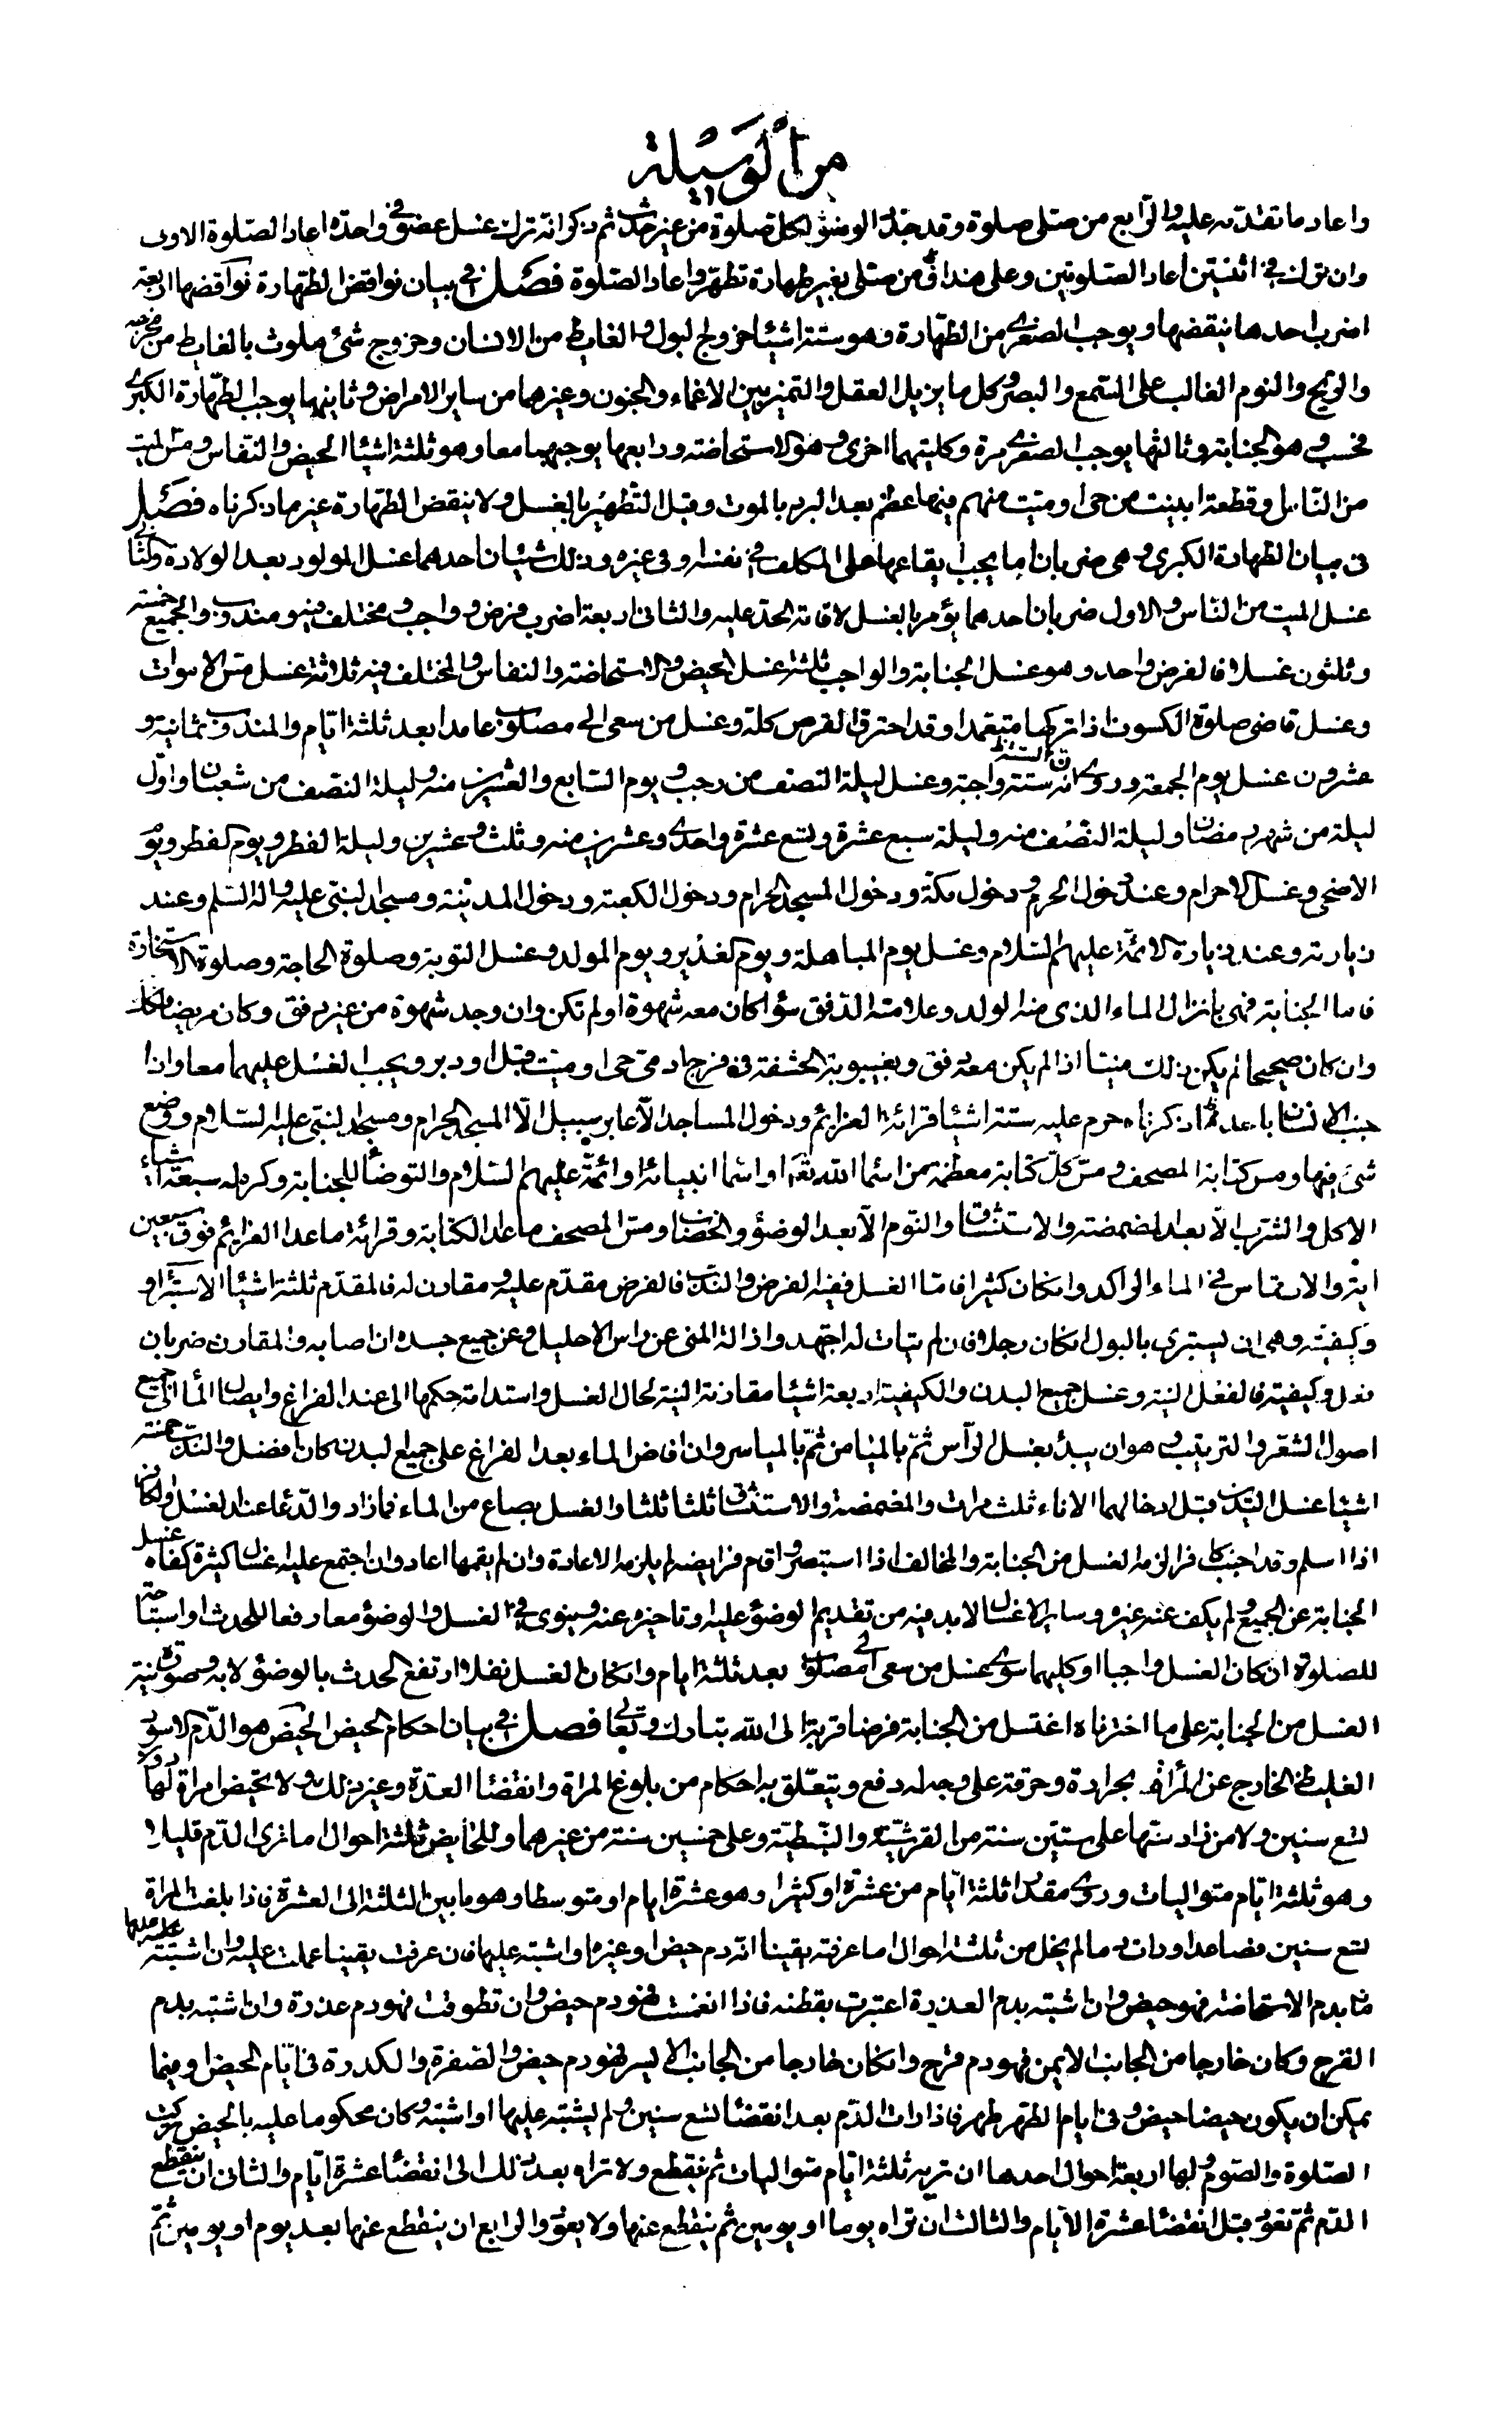 من الوسيلة
واعاد ما تقدم عليه والرابع من صلى صلوة وقد جدد الوضوء لكل صلوة من غير حدث ثم ذكر انه ترك غسل عضو في واحدة اعاد الصلوة الاولى
وان ترك في اثنتين اعاد الصلوتين وعلى هذا فى من صلى بغير طهارة تطهر واعاد الصلوة فصل في بيان نواقض الطهارة نواقضها اربعة
اضرب احدها ينقضها ويوجب الصغرى من الطهارة وهو ستة اشيئا خروج البول والغايط من الانسان وخروج شئ ملوث بالغايط من مخرجه
والريح والنوم الغالب على السمع والبصر وكل ما يزيل العقل والتميز بين الاغماء والجنون وغيرهما من ساير الامراض وثانيها يوجب الطهارة الكبرى
فحسب وهو الجنابة وثالثها يوجب الصغرى مرة وكليتهما اخرى وهو الاستحاضة ورابعها يوجبهما معا وهو ثلثة اشيئا الحيض والنفاس ومس الميت
من الناس وقطعة ابينت من حى او ميت منهم فيها عظم بعد البرد بالموت وقبل التطهير بالغسل ولا ينقض الطهارة غير ما ذكرناه فصل
في بيان الطهارة الكبرى وهى ضربان ما يجب ايقاعها على المكلف في نفسه او فى غيره وذلك شيئان احدهما غسل المولود بعد الولادة والثانى
غسل الميت من الناس والاول ضربان احدهما يؤمر بالغسل لاقامة الحد عليه والثانى اربعة اضرب فرض وواجب ومختلف فيه ومندوب والجميع خمسة
وثلثون غسلا فالفرض واحد وهو غسل الجنابة والواجب ثلثة غسل الحيض والاستحاضة والنفاس والمختلف فيه ثلاثة غسل مس الاموات
وغسل قاضى صلوة الكسوف اذا تركها متعمدا وقد احترق القرص كله وغسل من سعى الى مصلوب عامدا بعد ثلثة ايام والمندوب ثمانية و
عشرون غسل يوم الجمعة وروى انه سنة واجبة وغسل ليلة النصف من رجب ويوم السابع والعشرين منه وليلة النصف من شعبان واول
ليلة من شهر رمضان وليلة النصف منه وليلة سبع عشرة وتسع عشرة واحدى وعشرين منه وثلث وعشرين وليلة الفطر ويوم الفطر ويوم
الاضحى وغسل الاحرام وعند دخول الحرم ودخول مكة ودخول المسجد الحرام ودخول الكعبة ودخول المدينة ومسجد النبى عليه واله السلم وعند
زيارته وعند زيارة الائمة عليهم السلام وغسل يوم المباهلة ويوم الغدير ويوم المولد وغسل التوبة وصلوة الحاجة وصلوة الاستخارة
فاما الجنابة فهى بانزال الماء الذى منه الولد وعلامته الدفق سؤا كان معه شهوة او لم تكن وان وجد شهوة من غير دفق وكان مريضا فكذلك
وان كان صحيحا لم يكن ذلك منيا اذا لم يكن معه دفق وبغيبوبة الحشفة في فرج ادمى حى او ميت قبل او دبر ويجب الغسل عليهما معا واذا
جنب الانسان باحد ما ذكرناه حرم عليه ستة اشيئا قرائة العزائم ودخول المساجد الا عابر سبيل الا المسجد الحرام ومسجد النبى عليه السلام ووضع
شئ فيها ومس كتابة المصحف ومس كل كتابة معظمة من اسما الله تعالى او اسما انبيائه او ائمة عليهم السلام والتوضأ للجنابة وكره له سبعة اشياء
الاكل والشرب الا بعد المضمضة والاستنشاق والنوم الا بعد الوضؤ والخضاب ومس المصحف ما عدا الكتابة وقرائة ما عدا العزائم فوق سبعين
اية والارتماس في الماء الراكد وان كان كثيرا فاما الغسل ففيه الفرض والندب فالفرض مقدم عليه ومقارن له فالمقدم ثلثة اشيئا الاستبرأ و
كيفيته وهى ان يستبرى بالبول ان كان رجلا فان لم يتات له اجتهد وازالة المنى عن راس الاحليل وعن جميع جسده ان اصابه والمقارن ضربان
فعل وكيفية فالفعل النية وغسل جميع البدن والكيفية اربعة اشيئا مقارنة النية لحال الغسل واستدامة حكمها الى عند الفراغ وايصال المأ الى جميع
اصول الشعر والترتيب وهو ان يبدء بغسل الرأس ثم بالميامن ثم بالمياسر وان افاض الماء بعد الفراغ على جميع البدن كان افضل والندب خمسة
اشيئا غسل اليدين قبل ادخالهما الاناء ثلث مرات والمضمضة والاستنشاق ثلثا ثلثا والغسل بصاع من الماء فما زاد والدعا عند الغسل والكافر
اذا اسلم وقد اجنب كافرا لزمه الغسل من الجنابة والمخالف اذا استبصر واقام فرايضه لم يلزمه الاعادة وان لم يقمها اعاد وان اجتمع عليه اغسال كثيرة كفاه غسل
الجنابة عن الجميع ولم يكف عنه غيره وساير الاغسال لا بد فيه من تقديم الوضؤ عليه او تاخيره عنه وينوى في الغسل والوضؤ معا رفعا للحدث او استباحة
للصلوة ان كان الغسل واجبا او كليهما سوى غسل من سعى الى مصلوب بعد ثلثة ايام وان كان الغسل نفلا ارتفع الحدث بالوضؤ لا به وصورة نية
الغسل من الجنابة على ما اخترناه اغتسل من الجنابة فرضا قربة الى الله تبارك وتعالى فصل في بيان احكام الحيض الحيض هو الدم الاسود
الغليظ الخارج عن المرأة بحرارة وحرقة على وجه له دفع ويتعلق به احكام من بلوغ المراة وانقضئا العدة وغير ذلك ولا تحيض امراة لها دون
تسع سنين ولا من زاد سنها على ستين سنة من القرشية والنبطية وعلى خمسين سنة من غيرهما وللحايض ثلثة احوال اما ترى الدم قليلا
وهو ثلثة ايام متواليات وروى مقدار ثلثة ايام من عشرة او كثيرا وهو عشرة ايام او متوسطا وهو ما بين الثلثة الى العشرة فاذا بلغت المراة
تسع سنين فصاعدا ورات دما لم يخل من ثلثة احوال اما عرفته يقينا انه دم حيض او غيره او اشتبه عليها فان عرفت يقينا عملت عليه وان اشتبه عليها
دم الاستحاضة فهو حيض وان اشتبه بدم العذرة اعتبرت بقطنة فاذا انغمست فهو دم حيض وان تطوقت فهو دم عذرة وان اشتبه بدم
القرح وكان خارجا من الجانب الايمن فهو دم قرح وان كان خارجا من الجانب الايسر فهو دم حيض والصفرة والكدرة في ايام الحيض او فيما
يمكن ان يكون حيضا حيض وفى ايام الطهر طهر فاذا رات الدم بعد انقضئا تسع سنين ولم يشتبه عليها او اشتبه وكان محكوما عليه بالحيض تركت
الصلوة والصوم ولها اربعة احوال احدها ان تريه ثلثة ايام متواليات ثم ينقطع ولا تراه بعد ذلك الى انقضئا عشرة ايام والثانى ان ينقطع
الدم ثم تعود قبل انقضئا عشرة الايام والثالث ان تراه يوما او يومين ثم ينقطع عنها ولا يعود والرابع ان ينقطع عنها بعد يوم او يومين ثم